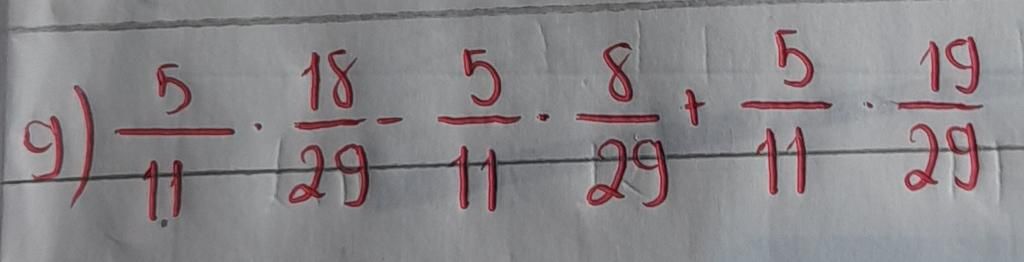 g) 5/11 · 18/29 - 5/11 · 8/29 + 5/11 · 19/29